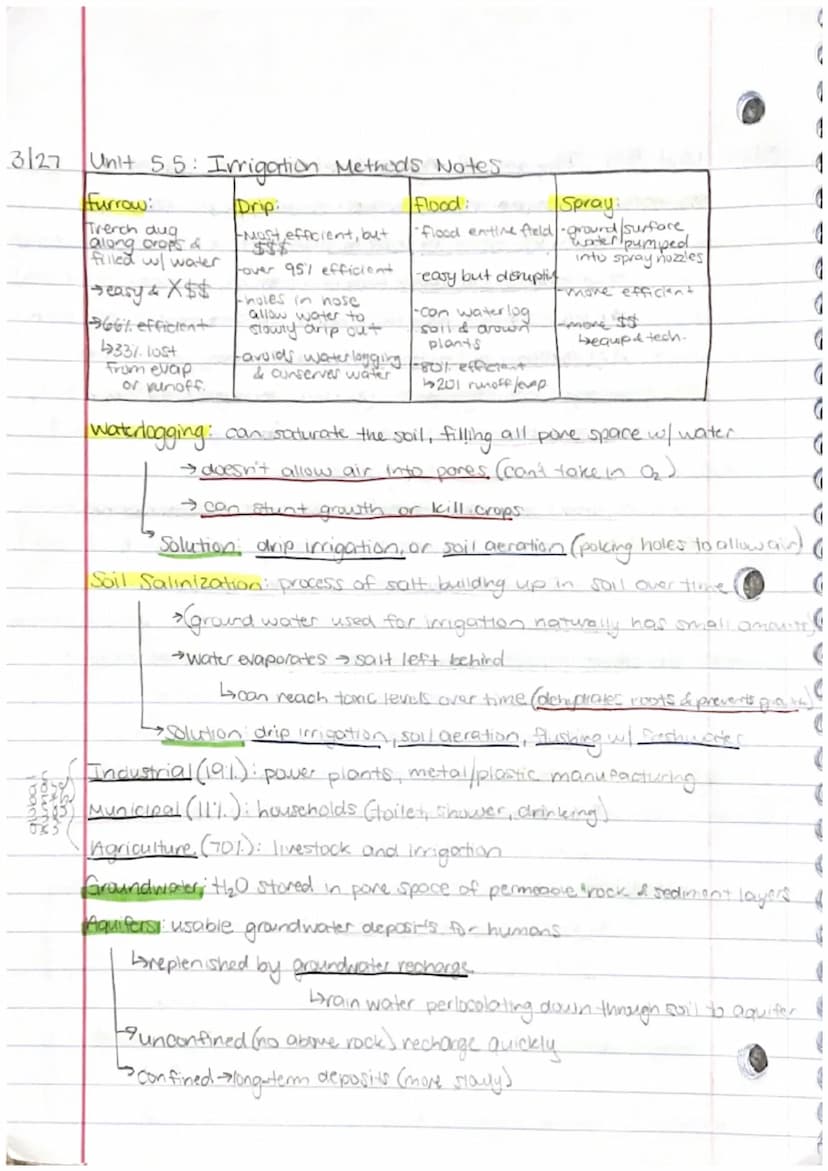 3/27 Unit 5.5: Irrigation Methods Notes
Furrow:
Trench dug
along crops &
filled w/ water
→ easy & X$$
→ 66% efficient
↳ 33% lost
from evap
or runoff.
Drip:
-Most efficient, but
$$$
-over 95% efficient
-holes in hose
allow water to
slowly drip out
-avoids waterlogging
& conserves water
Flood:
-flood entire field
-easy but disruptiv
-can waterlog
soil & drown
plants
-80% efficient
↳ 20% runoff/evap
Spray:
-ground/surface
water pumped
into spray nozzles
-more efficient
-more $$
↳ equip & tech.
Waterlogging: can saturate the soil, filling all pore space w/ water
→ doesn't allow air into pores (can't take in O₂)
→ can stunt growth or kill crops
→ Solution: drip irrigation, or soil aeration (poking holes to allow air)
Soil Salinization: process of salt building up in soil over time
→ (ground water used for irrigation naturally has small amounts)
→ water evaporates → salt left behind
↳ can reach toxic levels over time (dehydrates roots & prevents growth)
→ Solution: drip irrigation, soil aeration, flushing w/ freshwater
Industrial (19%): power plants, metal/plastic manufacturing
Municipal (11%): households (toilet, shower, drinking)
Agriculture (70%): livestock and irrigation
Groundwater: H₂O stored in pore space of permeable rock & sediment layers
Aquifers: usable groundwater deposits for humans
↳ replenished by groundwater recharge
↳ rain water perlocolating down through soil to aquifer
→ unconfined (no above rock) recharge quickly
→ confined → long-term deposits (more slowly)